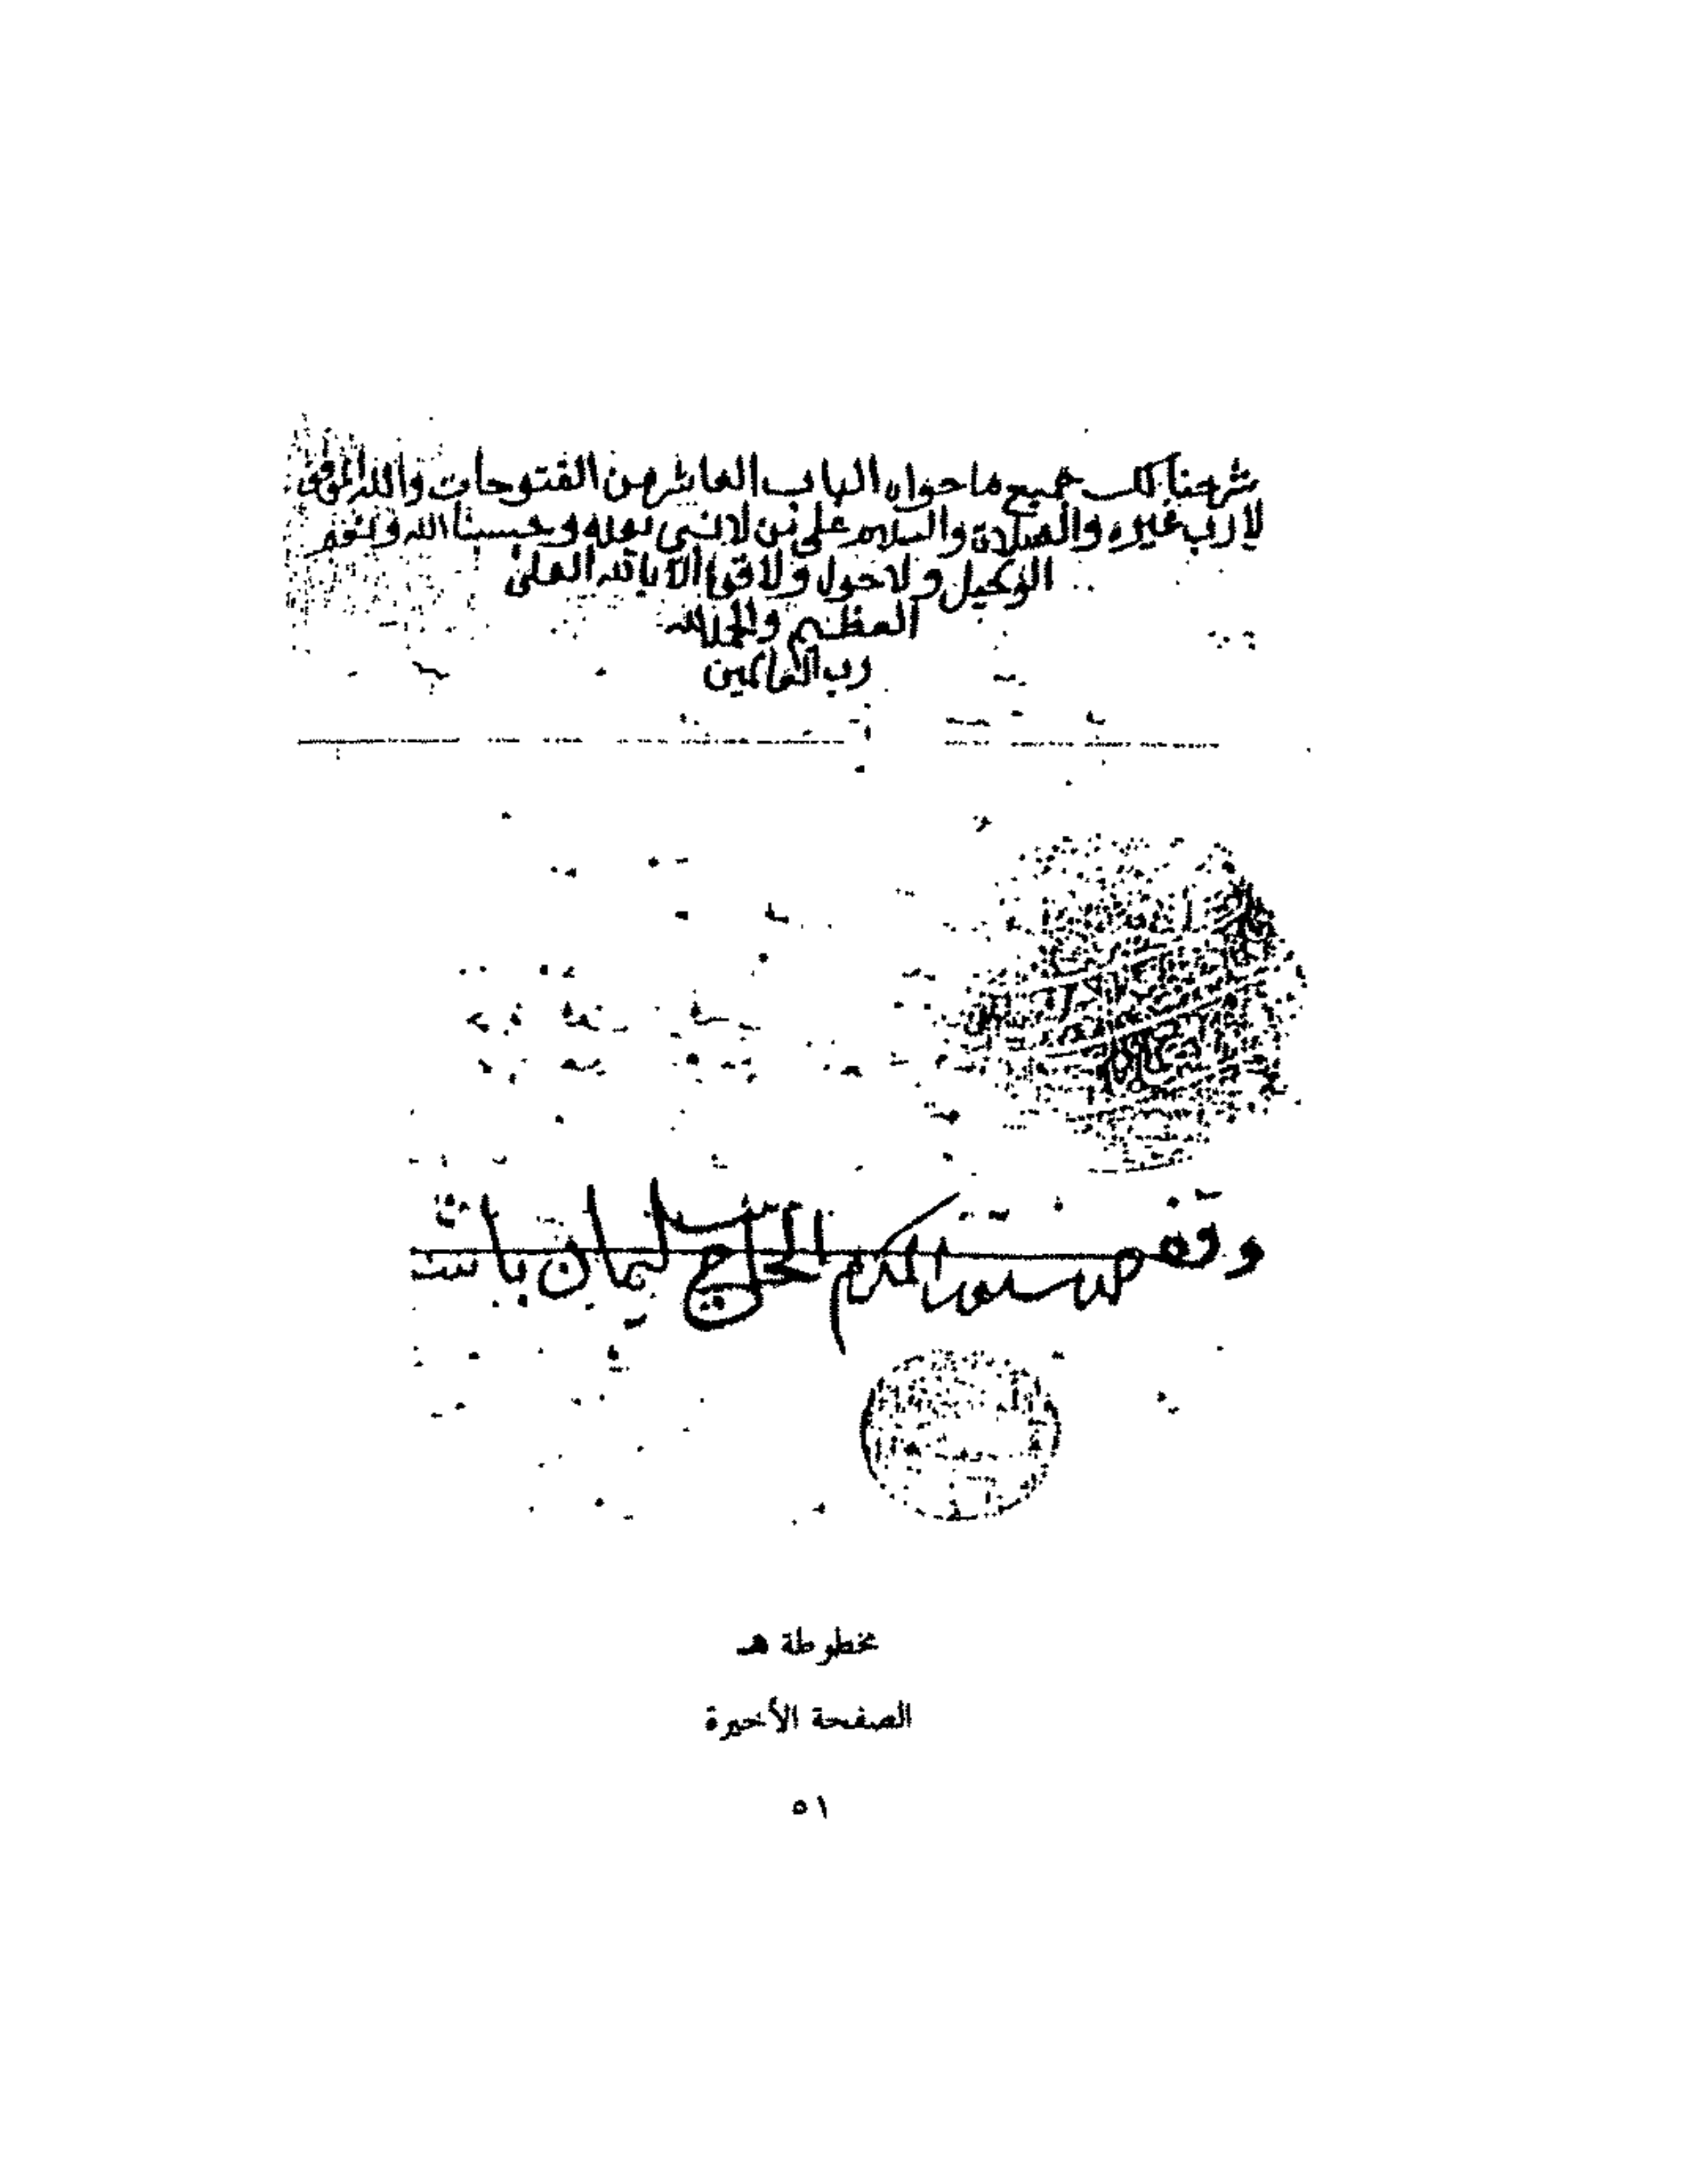 شرحنا لك جميع ما حواه الباب العاشر من الفتوحات والله الموفق
لا رب غيره والصلاة والسلام على من لا نبي بعده وحسبنا الله ونعم
الوكيل ولا حول ولا قوة الا بالله العلي
العظيم والحمد لله
رب العالمين
وقف دستور المكرم الحاج سليمان باشا
مخطوطة هـ
الصفحة الأخيرة
٥١